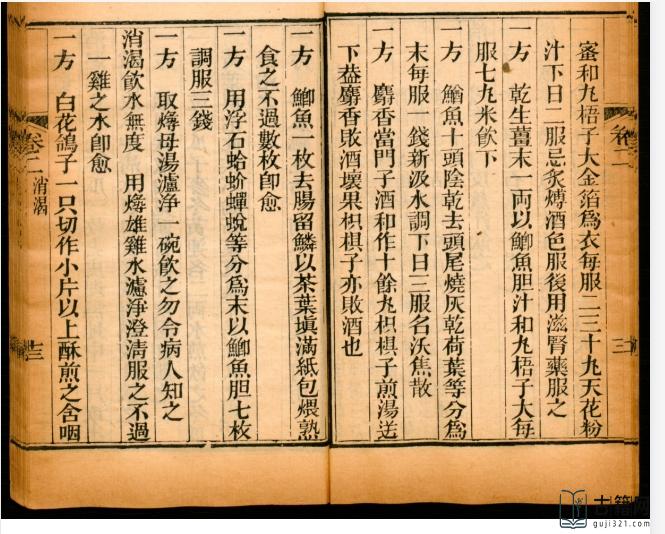 蜜和丸梧子大金箔爲衣每服二三十丸天花粉
汁下日二服忌炙煿酒色服後用滋腎藥服之
一方　乾生薑末一兩以鯽魚胆汁和丸梧子大每
服七丸米飮下
一方　鰌魚十頭陰乾去頭尾燒灰乾荷葉等分爲
末每服一錢新汲水調下日三服名沃焦散
一方　麝香當門子酒和作十餘丸枳椇子煎湯送
下葢麝香敗酒壞果枳椇子亦敗酒也
一方　鯽魚一枚去腸留鱗以茶葉塡滿紙包煨熟
食之不過數枚卽愈
一方　用浮石蛤蚧蟬蛻等分爲末以鯽魚胆七枚
調服三錢
一方　取燖母湯濾淨一碗飮之勿令病人知之
消渴飮水無度　用燖雄雞水濾淨澄淸服之不過
一雞之水卽愈
一方　白花鴿子一只切作小片以上酥煎之含咽
卷二
三
卷二　消渴
三
古籍网
guji321.com